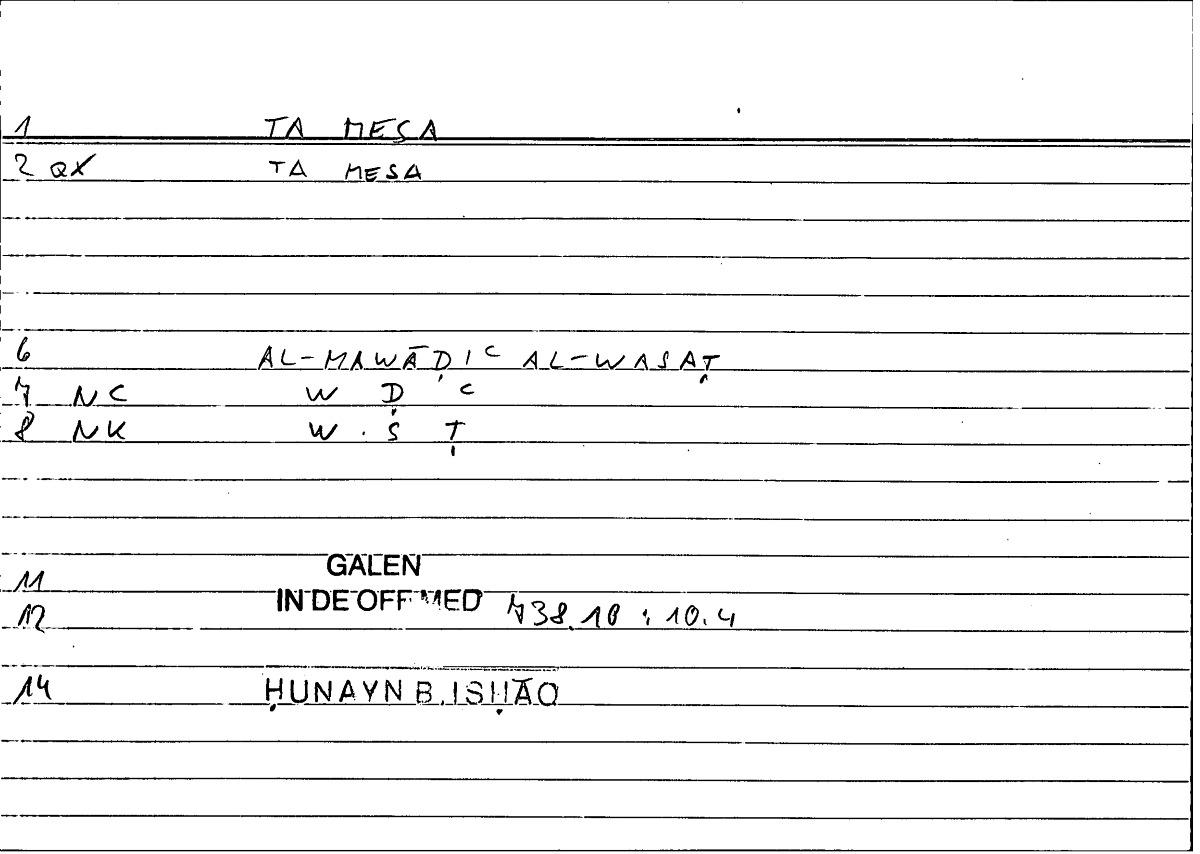 1 TA MESA
2 QX TA MESA
6 AL-MAWĀḌIᶜ AL-WASAṬ
7 NC W Ḍ ᶜ
8 NK W . S Ṭ
11 GALEN
12 IN DE OFF MED 738.10 : 10.4
14 ḤUNAYN B. ISḤĀQ